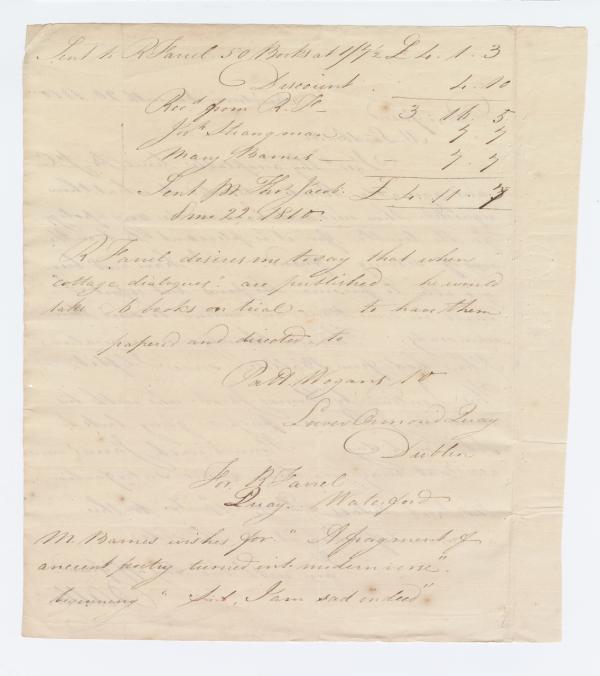 Sent to R Farrel 50 Books at 1/7½ £ 4 . 1 . 3
Discount . 4 . 10
Recd from R. F— 3 . 16 . 5
Josh Strangman 7 . 7
Mary Barnes — — 7 . 7
Sent pr Thos Jacob £ 4 . 11 . 7
6 mo 22 . 1810
R Farrel desires me to say that when
"cottage dialogues" are published — he would
take 6 books on trial — to have them
papered and directed to
Patk Wogans
Lower Ormond Quay
Dublin
For R Farrel
Quay . Waterford
M. Barnes wishes for "A fragment of
ancient poetry turned into modern verse".
beginning " I am sad indeed"